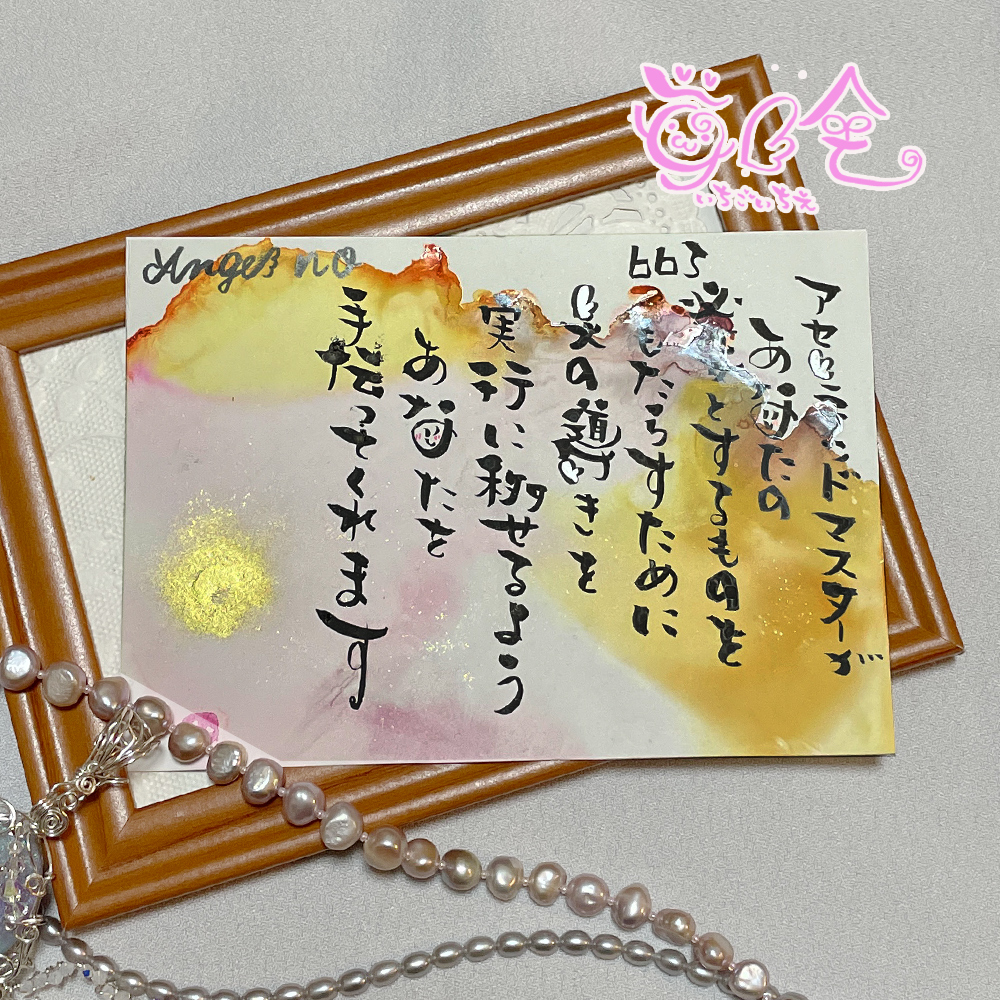 Angel no
663
マスターが
あなたの
必要とするものを
もたらすために
天の導きを
実行に移せるよう
あなたを
手伝ってくれます
いちごいちえ